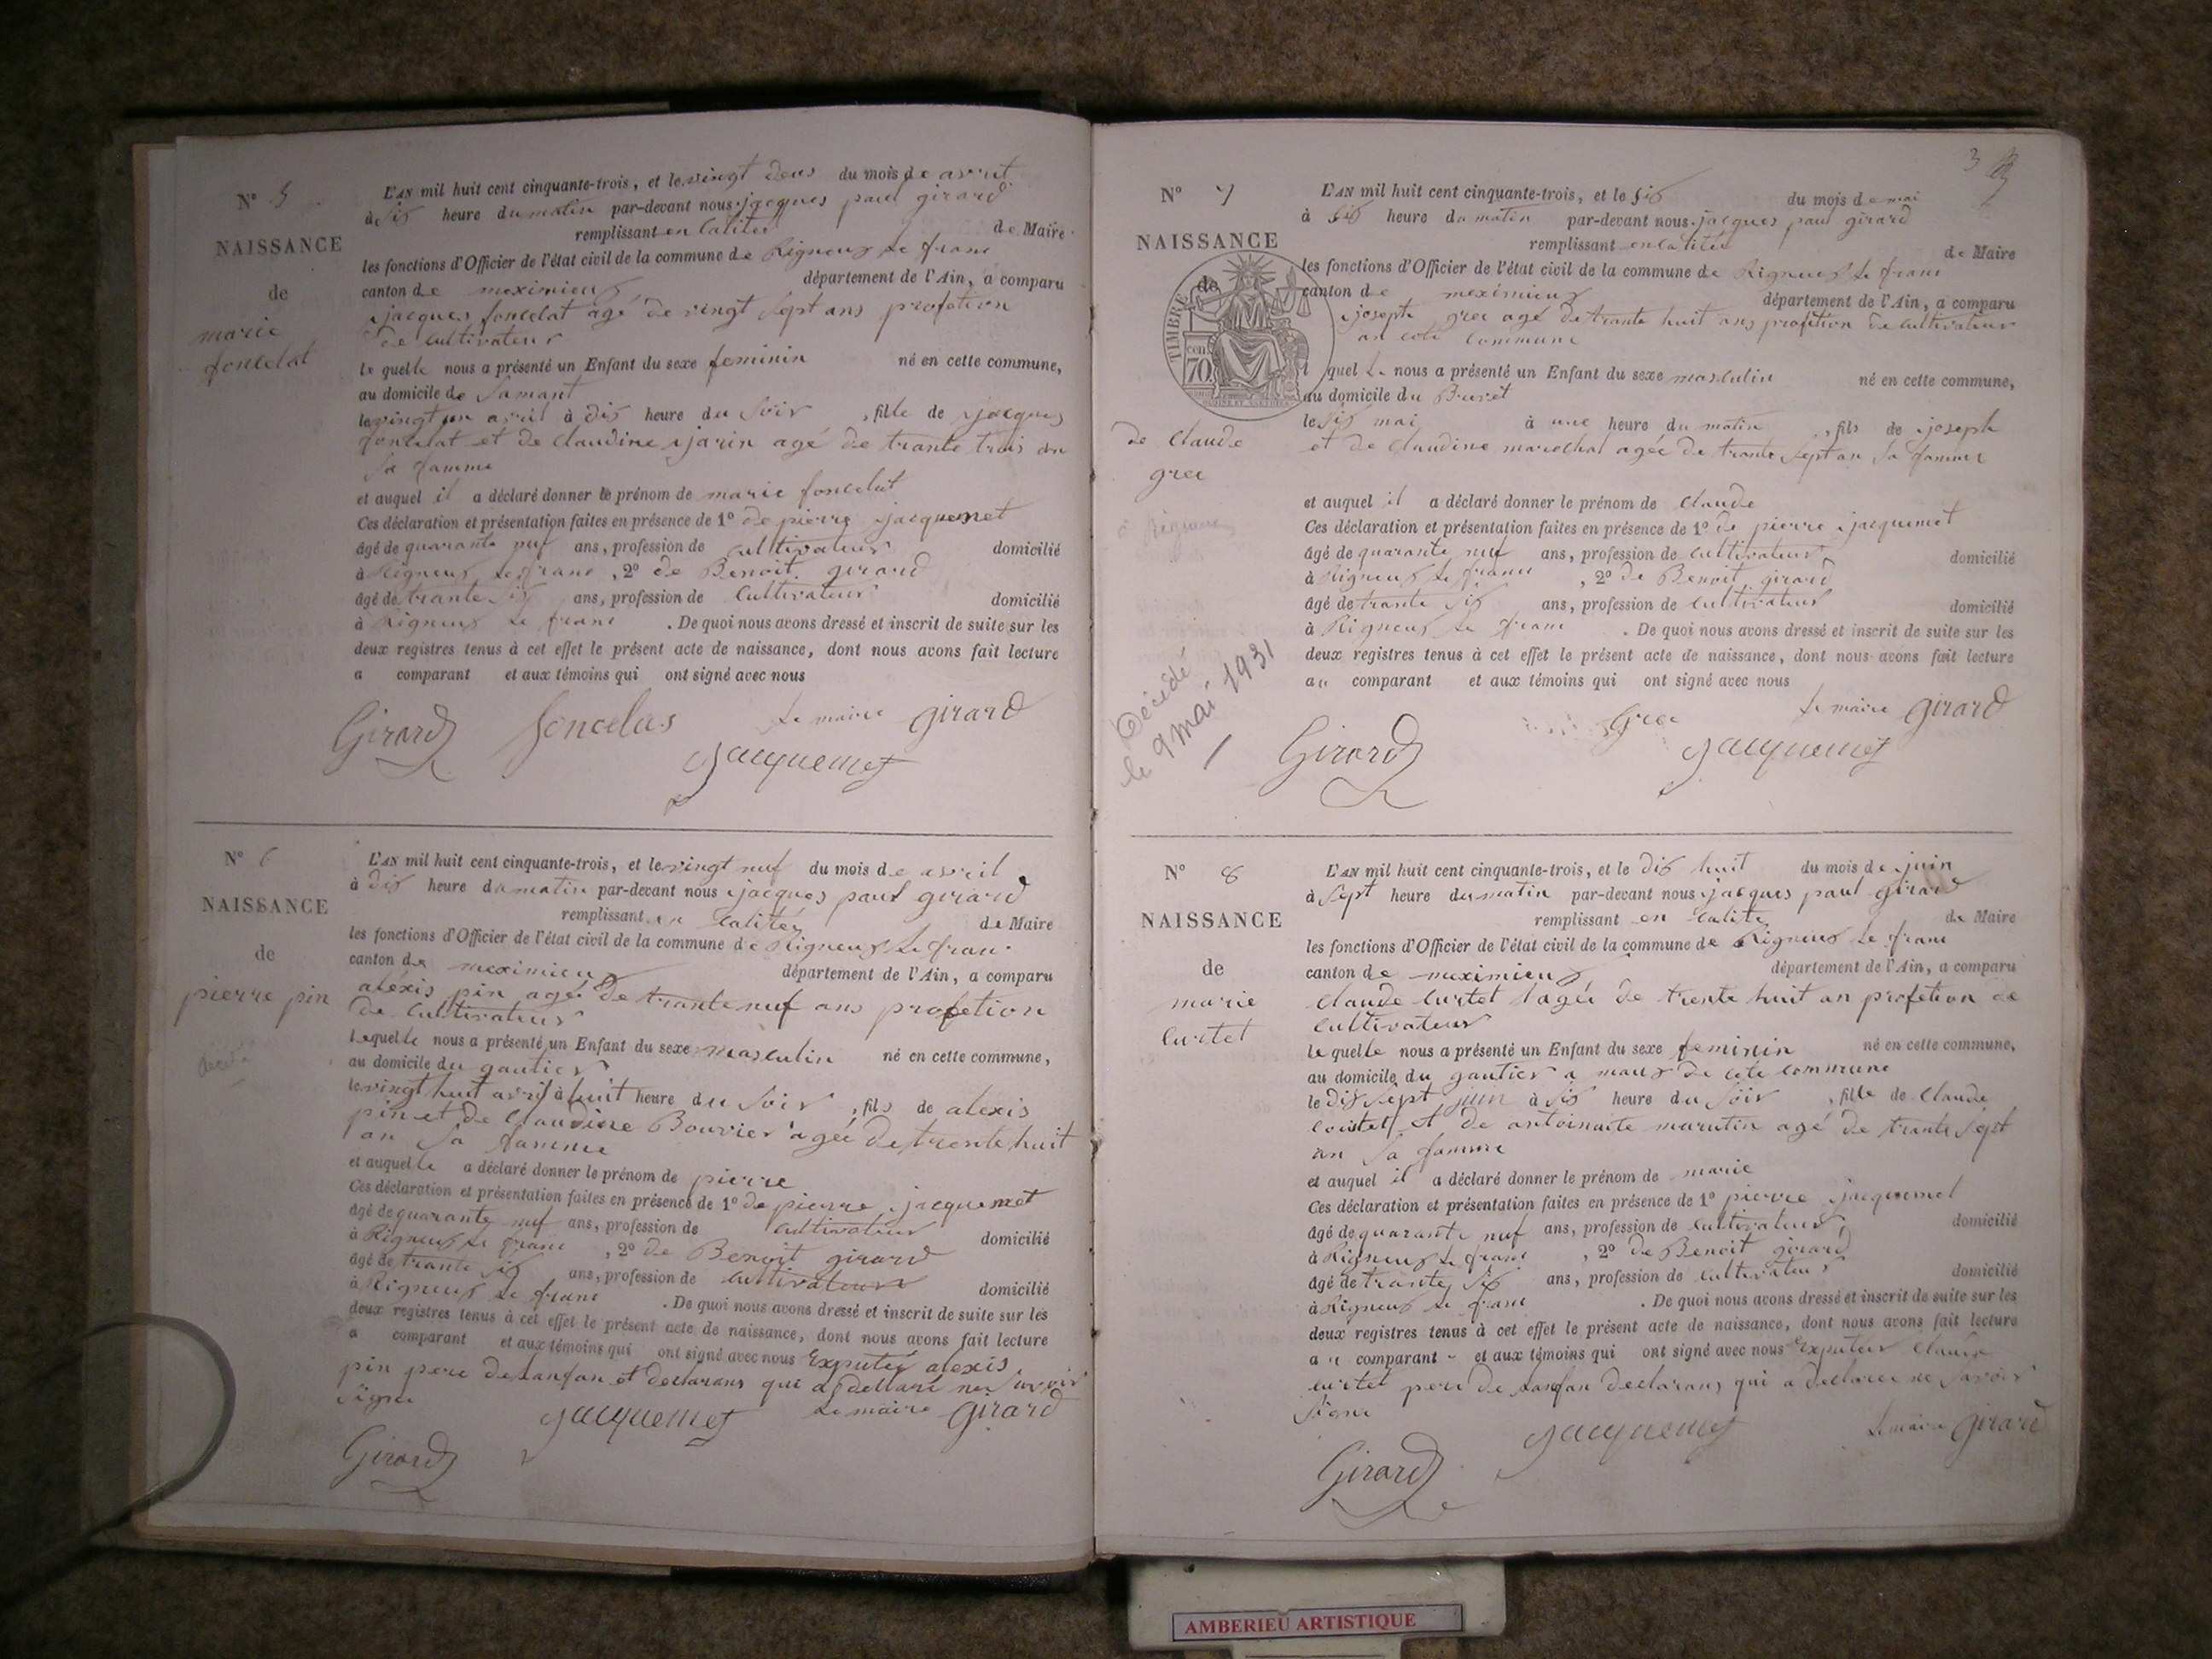 N° 5
NAISSANCE
de
marie
foncelat
L'AN mil huit cent cinquante-trois, et le vingt deus du mois de avril
à sis heure du matin par-devant nous jacques paul girard
remplissant en calité de Maire
les fonctions d'Officier de l'état civil de la commune de Rigneus le franc
canton de meximieus département de l'Ain, a comparu
jacques foncelat agé de vingt sept ans profetion
de cultivateur
le quelle nous a présenté un Enfant du sexe feminin né en cette commune,
au domicile de Samant
le vingt un avril à dis heure du soir , fille de jacques
foncelat et de claudine jarin agé de trante trois an
sa famme
et auquel il a déclaré donner le prénom de marie foncelat
Ces déclaration et présentation faites en présence de 1° de pierre jacquemet
âgé de quarante neuf ans, profession de cultivateur domicilié
à Rigneus le franc , 2° de Benoit girard
âgé de trante sis ans, profession de cultivateur domicilié
à Rigneus le franc . De quoi nous avons dressé et inscrit de suite sur les
deux registres tenus à cet effet le présent acte de naissance, dont nous avons fait lecture
a comparant et aux témoins qui ont signé avec nous
Girard foncelas le maire girard
jacquemet
N° 6
NAISSANCE
de
pierre pin
décédé
L'AN mil huit cent cinquante-trois, et le vingt neuf du mois de avril
à dis heure du matin par-devant nous jacques paul girard
remplissant en calitéz de Maire
les fonctions d'Officier de l'état civil de la commune de Rigneus le franc
canton de meximieus département de l'Ain, a comparu
aléxis pin agé de trante neuf ans profetion
de cultivateur
lequelle nous a présenté un Enfant du sexe masculin né en cette commune,
au domicile du gautier
le vingt huit avril à huit heure du soir , fils de alexis
pin et de claudine Bouvier agée de trente huit
an sa famme
et auquel le a déclaré donner le prénom de pierre
Ces déclaration et présentation faites en présence de 1° de pierre jacquemet
âgé de quarante neuf ans, profession de cultivateur domicilié
à Rigneus le franc , 2° de Benoit girard
âgé de trante sis ans, profession de cultivateur domicilié
à Rigneus le franc . De quoi nous avons dressé et inscrit de suite sur les
deux registres tenus à cet effet le présent acte de naissance, dont nous avons fait lecture
a comparant et aux témoins qui ont signé avec nous Exputéz alexis
pin pere de lanfan et declarans qui a dellaré ne savoir
signe
jacquemet le maire girard
Girard
3
N° 7
NAISSANCE
de
TIMBRE
cen
70
de claude
grec
à Rigneux
Décédé
le 9 mai 1931
L'AN mil huit cent cinquante-trois, et le sis du mois de mai
à sis heure du matin par-devant nous jacques paul girard
remplissant en calitéz de Maire
les fonctions d'Officier de l'état civil de la commune de Rigneus le franc
canton de meximieux département de l'Ain, a comparu
joseph grec agé de trante huit ans profetion de cultivateur
an cete commune
l quel le nous a présenté un Enfant du sexe masculin né en cette commune,
au domicile du Buret
le sis mai à une heure du matin , fils de joseph
et de claudine marechal agée de trante sept an sa famme
et auquel il a déclaré donner le prénom de claude
Ces déclaration et présentation faites en présence de 1° de pierre jacquemet
âgé de quarante neuf ans, profession de cultivateur domicilié
à Rigneus le franc , 2° de Benoit girard
âgé de trante sis ans, profession de cultivateur domicilié
à Rigneus le franc . De quoi nous avons dressé et inscrit de suite sur les
deux registres tenus à cet effet le présent acte de naissance, dont nous avons fait lecture
au comparant et aux témoins qui ont signé avec nous
Grec le maire girard
Girard jacquemet
N° 8
NAISSANCE
de
marie
curtet
L'AN mil huit cent cinquante-trois, et le dis huit du mois de juin
à sept heure du matin par-devant nous jacques paul girard
remplissant en calitéz de Maire
les fonctions d'Officier de l'état civil de la commune de Rigneus le franc
canton de meximieus département de l'Ain, a comparu
claude curtet agée de trente huit an profetion de
cultivateur
le quelle nous a présenté un Enfant du sexe feminin né en cette commune,
au domicile du gautier a maus de cete commune
le dis sept juin à sis heure du soir , fille de claude
courtet et de antoinaite marutin agé de trante sept
an sa famme
et auquel il a déclaré donner le prénom de marie
Ces déclaration et présentation faites en présence de 1° pierre jacquemet
âgé de quarante neuf ans, profession de cultivateur domicilié
à Rigneus le franc , 2° de Benoit girard
âgé de trante sis ans, profession de cultivateur domicilié
à Rigneus le franc . De quoi nous avons dressé et inscrit de suite sur les
deux registres tenus à cet effet le présent acte de naissance, dont nous avons fait lecture
au comparant et aux témoins qui ont signé avec nous Exputéz claude
curtet pere de lanfan declarans qui a declaree ne savoir
signe
jacquemet le maire girard
Girard
AMBERIEU ARTISTIQUE